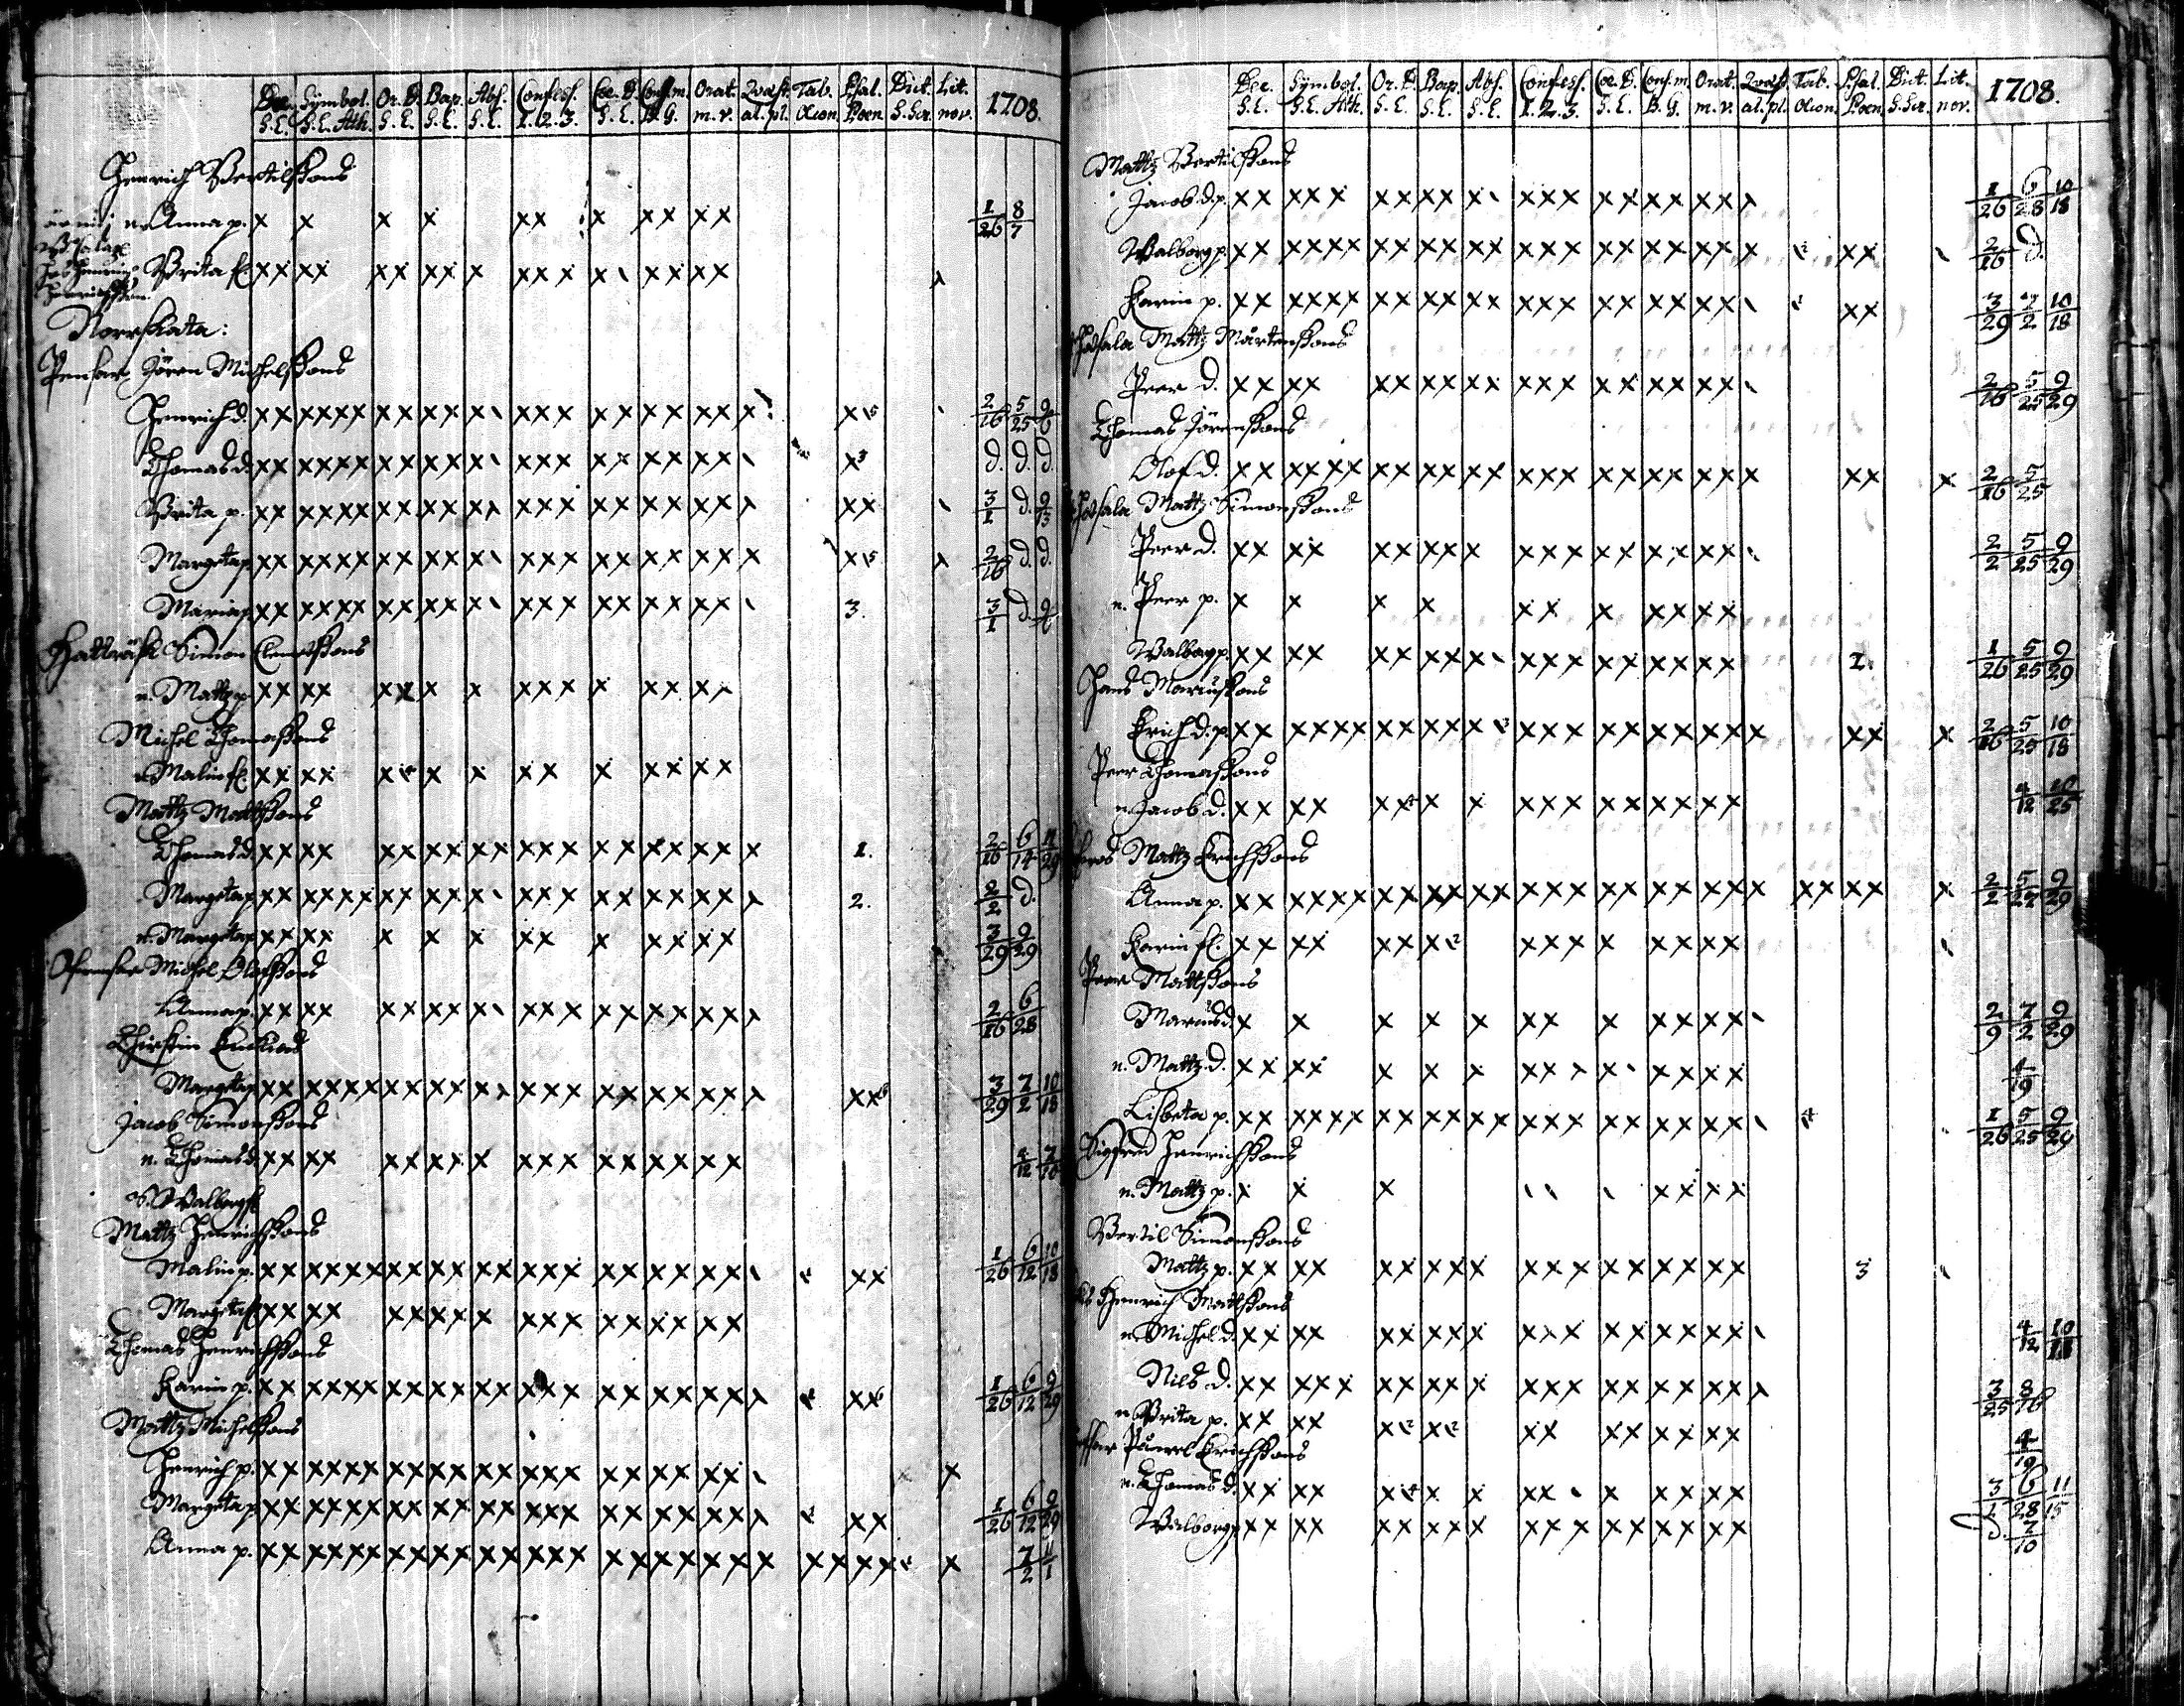 Dec. Symbol. Or. D. Bap. Abs. Confess. Cœ. D. Conf. m. Orat. Quæst. Tab. Psal. Dict. Lit. 1708.
S. E. S. E. Ath. S. E. S. E. S. E. 1. 2. 3. S. E. B. G. m. v. al. pl. Œcon. Poen S. Scr. nov.
Henrich Bertilssons
n. Anna p. x x x x xx x xx xx 1/26 8/7
Brita fl. xx xx xx xx x xxx x xx xx
Norrskata:
Pensar Jören Michelssons
Henrich d. xx xxxx xx xx x xxx xx xx xx x x 5 2/16 5/25 9/6
Thomas d. xx xxxx xx xx x xxx xx xx xx x 3 d. d. d.
Brita p. xx xxxx xx xx xx xxx xx xx xx xx 3/1 d. 9/13
Margeta p. xx xxxx xx xx x xxx xx xx xx x x 5 2/16 d. d.
Maria p. xx xxxx xx xx x xxx xx xx xx 3. 3/1 d. 9/6
Simon Clemetssons
n. Mattz p. xx xx xx x x xxx x xx x
Michel Thomassons
n. Malin fl. xx xx x x x xx x xx xx
Mattz Mattssons
Thomas d. xx xx xx xx xx xxx xx xx xx x 1. 2/16 6/14 11/29
Margeta p. xx xxxx xx xx x xxx xx xx xx 2. 2/2 d.
n. Margeta p. xx xx x x x xx x xx xx 3/29 9/29
Michel Olofssons
Anna p. xx xx xx xx x xxx xx xx xx 2/16 6/28
Kirstin Enckias
Margeta p. xx xxxx xx xx xx xxx xx xx xx xx 3/29 7/2 10/18
Jacob Simonssons
n. Thomas d. xx xx xx xx x xxx xx xx xx 4/12 7/10
Walborg fl.
Mattz Henrichssons
Malin p. xx xxxx xx xx xx xxx xx xx xx xx 1/26 6/12 10/18
Margeta fl. xx xx xx xx x xxx xx xx xx
Thomas Henrichssons
Karin p. xx xxxx xx xx xx xxx xx xx xx xx 1/26 6/12 9/29
Mattz Michelssons
Henrich p. xx xxxx xx xx xx xxx xx xx xx x
Margeta p. xx xxxx xx xx xx xxx xx xx xx xx 1/26 6/12 9/29
Anna p. xx xxxx xx xx xx xxx xx xx xx x xx xx x 7/2 11/1
Dec. Symbol. Or. D. Bap. Abs. Confess. Cœ. D. Conf. m. Orat. Quæst. Tab. Psal. Dict. Lit. 1708.
S. E. S. E. Ath. S. E. S. E. S. E. 1. 2. 3. S. E. B. G. m. v. al. pl. Œcon. Poen. S. Scr. nov.
Mattz Bertilssons
Jacob d. p. xx xxx xx xx x xxx xx xx xx 1/26 6/28 10/18
Walborg p. xx xxxx xx xx xx xxx xx xx xx x xx 2/16 d.
Karin p. xx xxxx xx xx xx xxx xx xx xx xx 3/29 7/2 10/18
Mattz Mårtenssons
Peer d. xx xx xx xx xx xxx xx xx xx 2/16 5/25 9/29
Thomas Jörenssons
Olof d. xx xxxx xx xx xx xxx xx xx xx x xx x 2/16 5/25
Mattz Simonssons
Peer d. xx xx xx xx x xxx xx xx xx 2/2 5/25 9/29
n. Peer p. x x x x xx x xx xx
Walborg p. xx xx xx xx x xxx xx xx xx 1. 1/26 5/25 9/29
Hans Mariussons
Erich d. p. xx xxxx xx xx x xxx xx xx xx x xx x 2/16 5/25 10/18
Peer Thomassons
n. Jacob d. xx xx xx x x xxx xx xx xx 4/12 10/25
Mattz Erichssons
Anna p. xx xxxx xx xx xx xxx xx xx xx x xx xx x 2/2 5/27 9/29
Karin fl. xx xx xx x 2 xxx x xx xx
Peer Mattssons
Marius d. x x x x x xx x xx xx 2/9 7/2 9/29
n. Mattz d. xx xx x x x xxx x xx xx 4/19
Lisbeta p. xx xxxx xx xx xx xxx xx xx xx 1/26 5/25 9/29
Sigfred Henrichssons
n. Mattz p. x x x xx xx
Bertil Simonssons
Mattz p. xx xx xx xx x xxx xx xx xx 3
Henrich Mattssons
n. Michel d. xx xx xx xx x xxx xx xx xx 4/12 10/18
Nils d. xx xxx xx xx x xxx xx xx xx 3/25 8/16
n. Brita p. xx xx x 2 x 2 xx xx xx xx 4/19
Påwel Erichssons
n. Thomas d. xx xx x x x xx x xx xx 3/1 6/28 11/15
Walborg p. xx xx xx xx x xxx xx xx xx d. 7/10